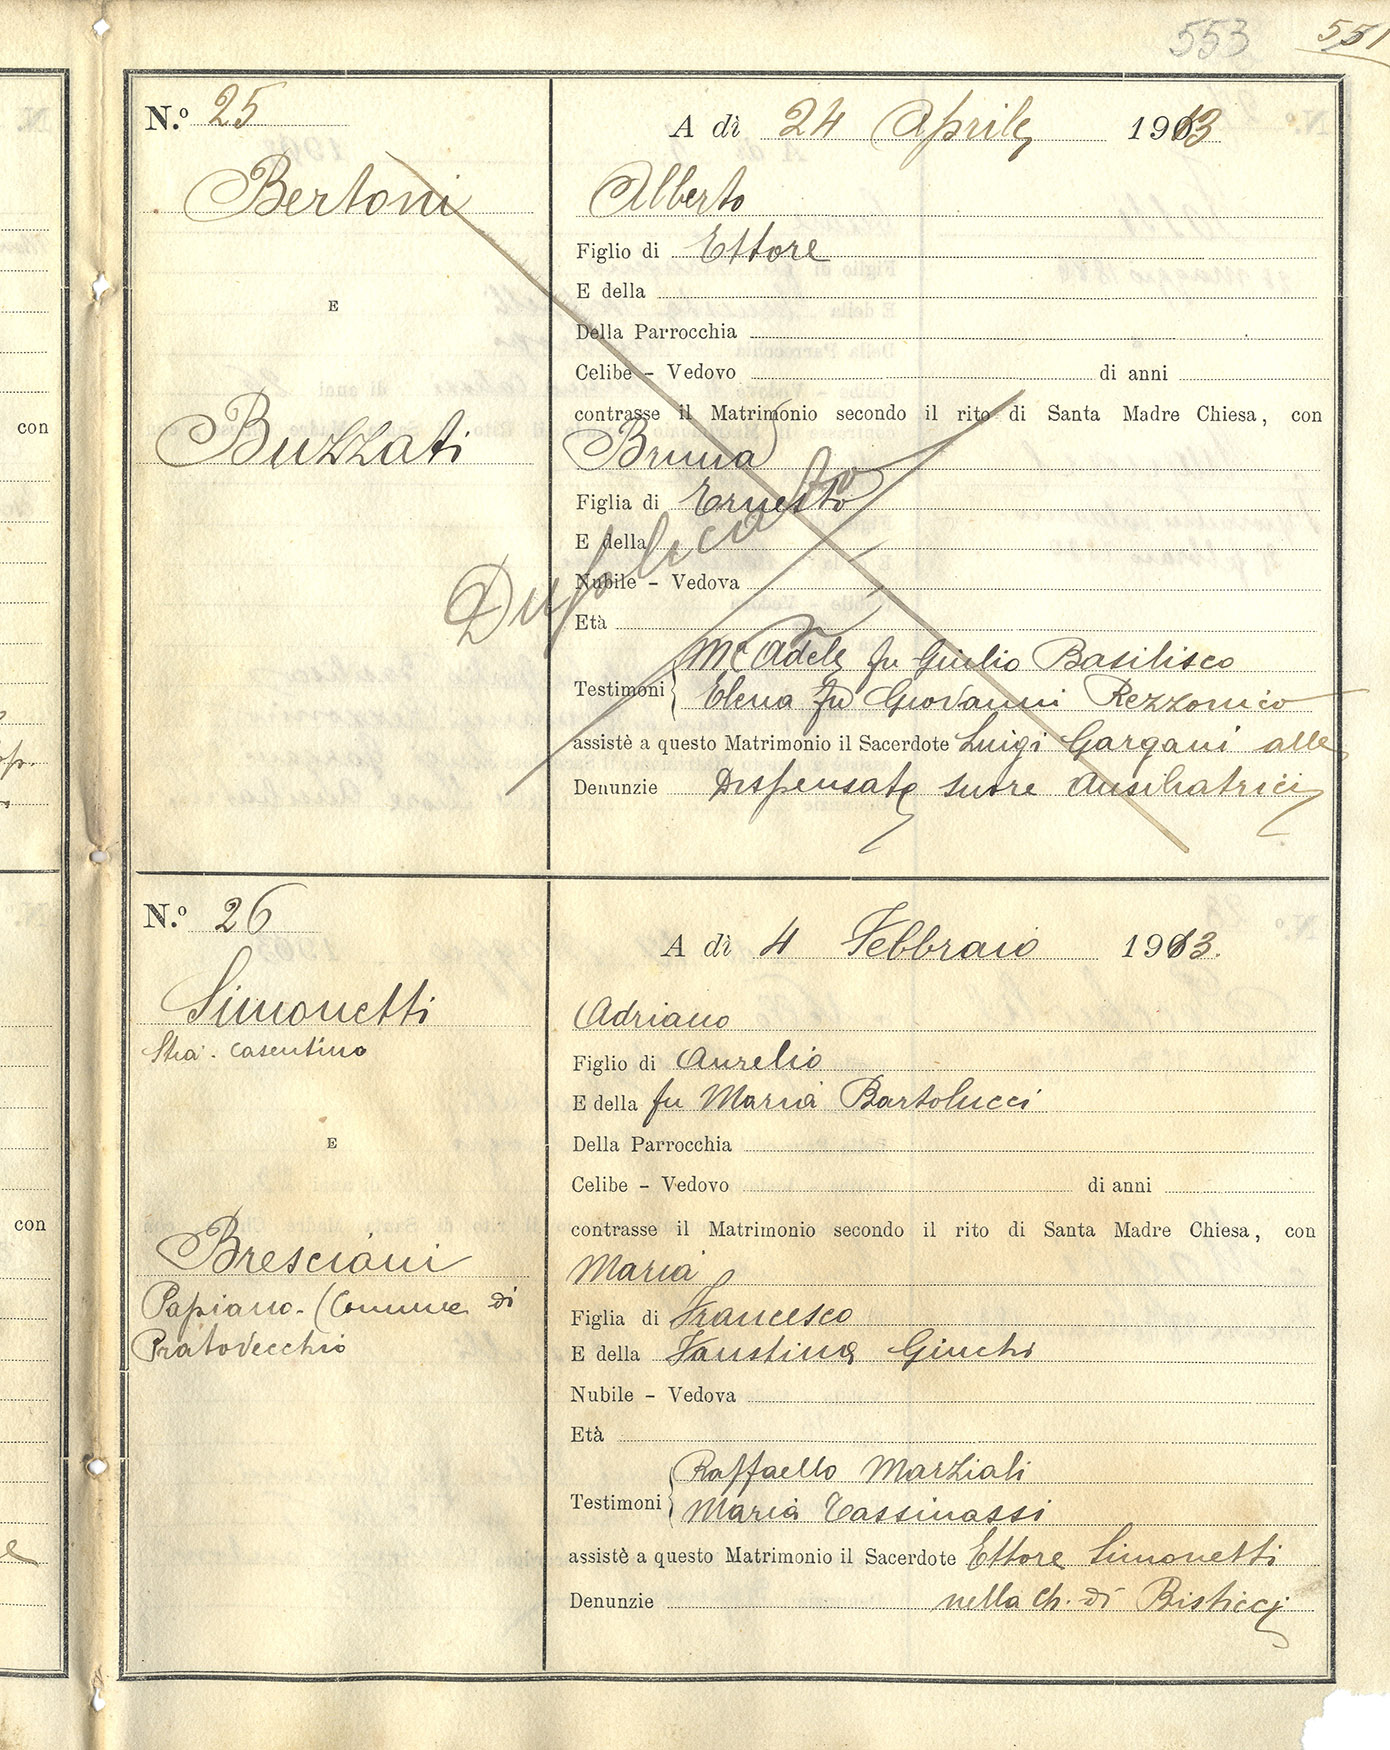 553 551
N.º 25
A dì 24 Aprile 1913
Bertoni
Alberto
Figlio di Ettore
E della
E
Della Parrocchia
Celibe – Vedovo di anni
contrasse il Matrimonio secondo il rito di Santa Madre Chiesa, con
con
Buzzati
Bruna
Figlia di Ernesto
E della
Duplicato
Nubile – Vedova
Età
Adele fu Giulio Basilisco
Testimoni
Elena fu Giovanni Rezzonico
assistè a questo Matrimonio il Sacerdote Luigi Gargani alle
Denunzie Dispensate suore Ausiliatrici
N.º 26
A dì 4 Febbraio 1913.
Simonetti
Adriano
Stia. Casentino
Figlio di Aurelio
E della fu Maria Bartolucci
E
Della Parrocchia
Celibe – Vedovo di anni
contrasse il Matrimonio secondo il rito di Santa Madre Chiesa, con
con
Bresciani
Maria
Papiano. (Comune di
Figlia di Francesco
Pratovecchio
E della Faustina Giuchi
Nubile – Vedova
Età
Raffaello Marziali
Testimoni
Maria Tassinassi
assistè a questo Matrimonio il Sacerdote Ettore Simonetti
Denunzie nella Ch. di Bisticci